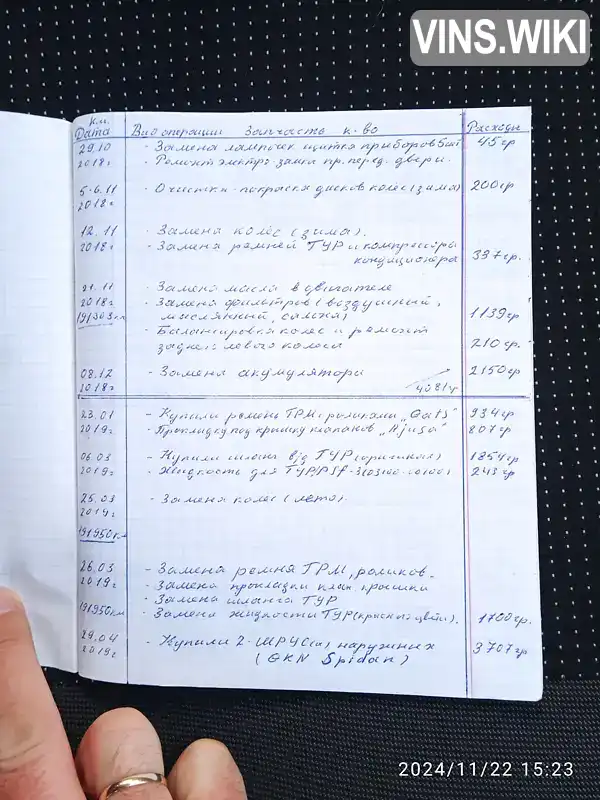 VINS.WIKI
км.
Дата Вид операции Запчасть к-во Расходы
29.10 - Замена лампочек щитка приборов 5шт 45гр
2018г. - Ремонт электро замка пр. перед. двери.
5-6.11 - Очистка-покраска дисков колёс (зима) 200гр
2018г
12.11 - Замена колёс (зима).
2018г - Замена ремней ГУР и компрессора
кондиционера 337гр.
21.11 - Замена масла в двигателе
2018г - Замена фильтров (воздушный,
191303км маслянный, салона) 1139гр
- Балансировка колес и ремонт
заднего левого колеса 210гр.
08.12 - Замена акумулятора 2150гр
2018г 4081гр
23.01 - Купили ремень ГРМ с роликами "Gats" 934гр
2019г. - Прокладку под крышку клапанов "Ajusa" 807гр
06.03 - Купили шланг від ГУР (оригинал) 1854гр
2019г - Жидкость для ГУР PSF-3 (03100-00100) 243гр
25.03 - Замена колес (лето).
2019г
191950км
26.03 - Замена ремня ГРМ, роликов.
2019г - Замена прокладки клап. крышки
- Замена шланга ГУР
191950км - Замена жидкости ГУР (красный цвет). 1700гр.
29.04 - Купили 2-ШРУС(а) наружних 3707гр
2019г (GKN Spidan)
2024/11/22 15:23